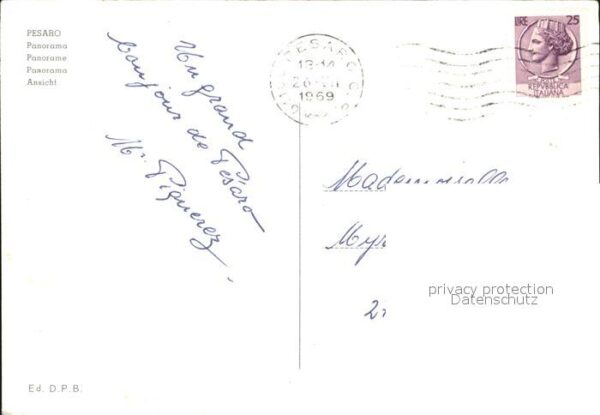 PESARO
Panorama
Panorame
Panorama
Ansicht
Un grand
bonjour de Pésaro
Mr. Piquerez
PESARO
13-14
1969
LIRE 25
REPVBBLICA
ITALIANA
Mademoiselle
Myr
2
privacy protection
Datenschutz
Ed. D.P.B.